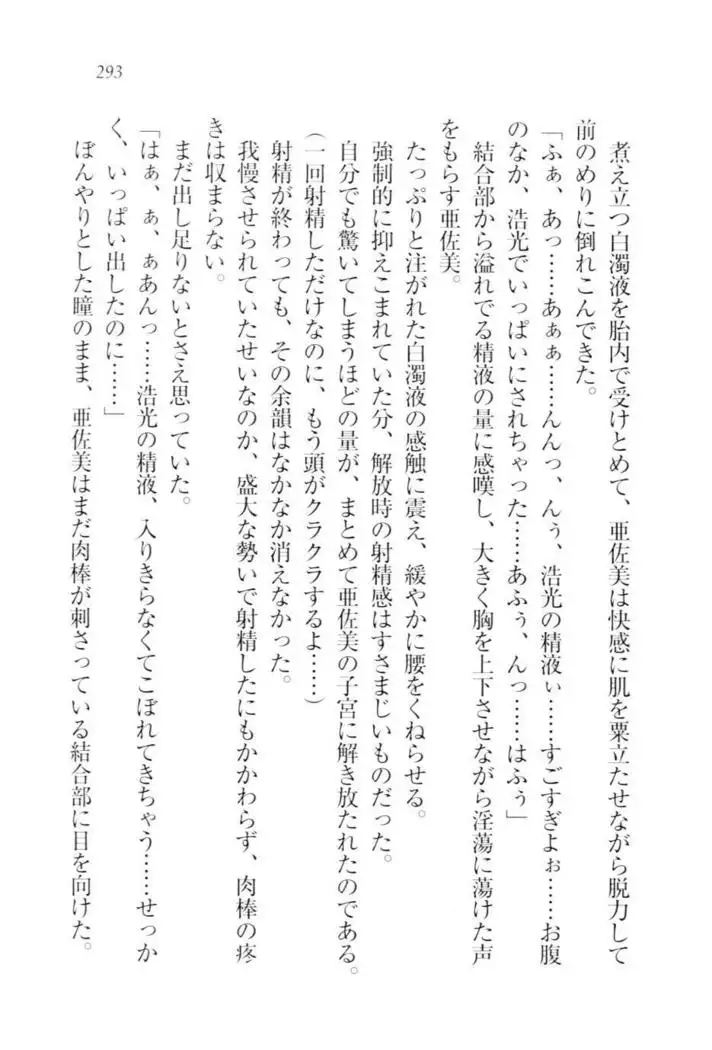 293
煮え立つ白濁液を胎内で受けとめて、亜佐美は快感に肌を粟立たせながら脱力して
前のめりに倒れこんできた。
「ふぁ、あっ……あぁぁ……んんっ、んぅ、浩光の精液ぃ……すごすぎよぉ……お腹
のなか、浩光でいっぱいにされちゃった……あふぅ、んっ……はふぅ」
結合部から溢れでる精液の量に感嘆し、大きく胸を上下させながら淫蕩に蕩けた声
をもらす亜佐美。
たっぷりと注がれた白濁液の感触に震え、緩やかに腰をくねらせる。
強制的に抑えこまれていた分、解放時の射精感はすさまじいものだった。
自分でも驚いてしまうほどの量が、まとめて亜佐美の子宮に解き放たれたのである。
（一回射精しただけなのに、もう頭がクラクラするよ……）
射精が終わっても、その余韻はなかなか消えなかった。
我慢させられていたせいなのか、盛大な勢いで射精したにもかかわらず、肉棒の疼
きは収まらない。
まだ出し足りないとさえ思っていた。
「はぁ、ぁ、ぁあんっ……浩光の精液、入りきらなくてこぼれてきちゃう……せっか
く、いっぱい出したのに……」
ぼんやりとした瞳のまま、亜佐美はまだ肉棒が刺さっている結合部に目を向けた。